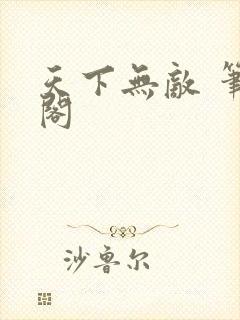 天下無敵 筆
閣
沙魯尔